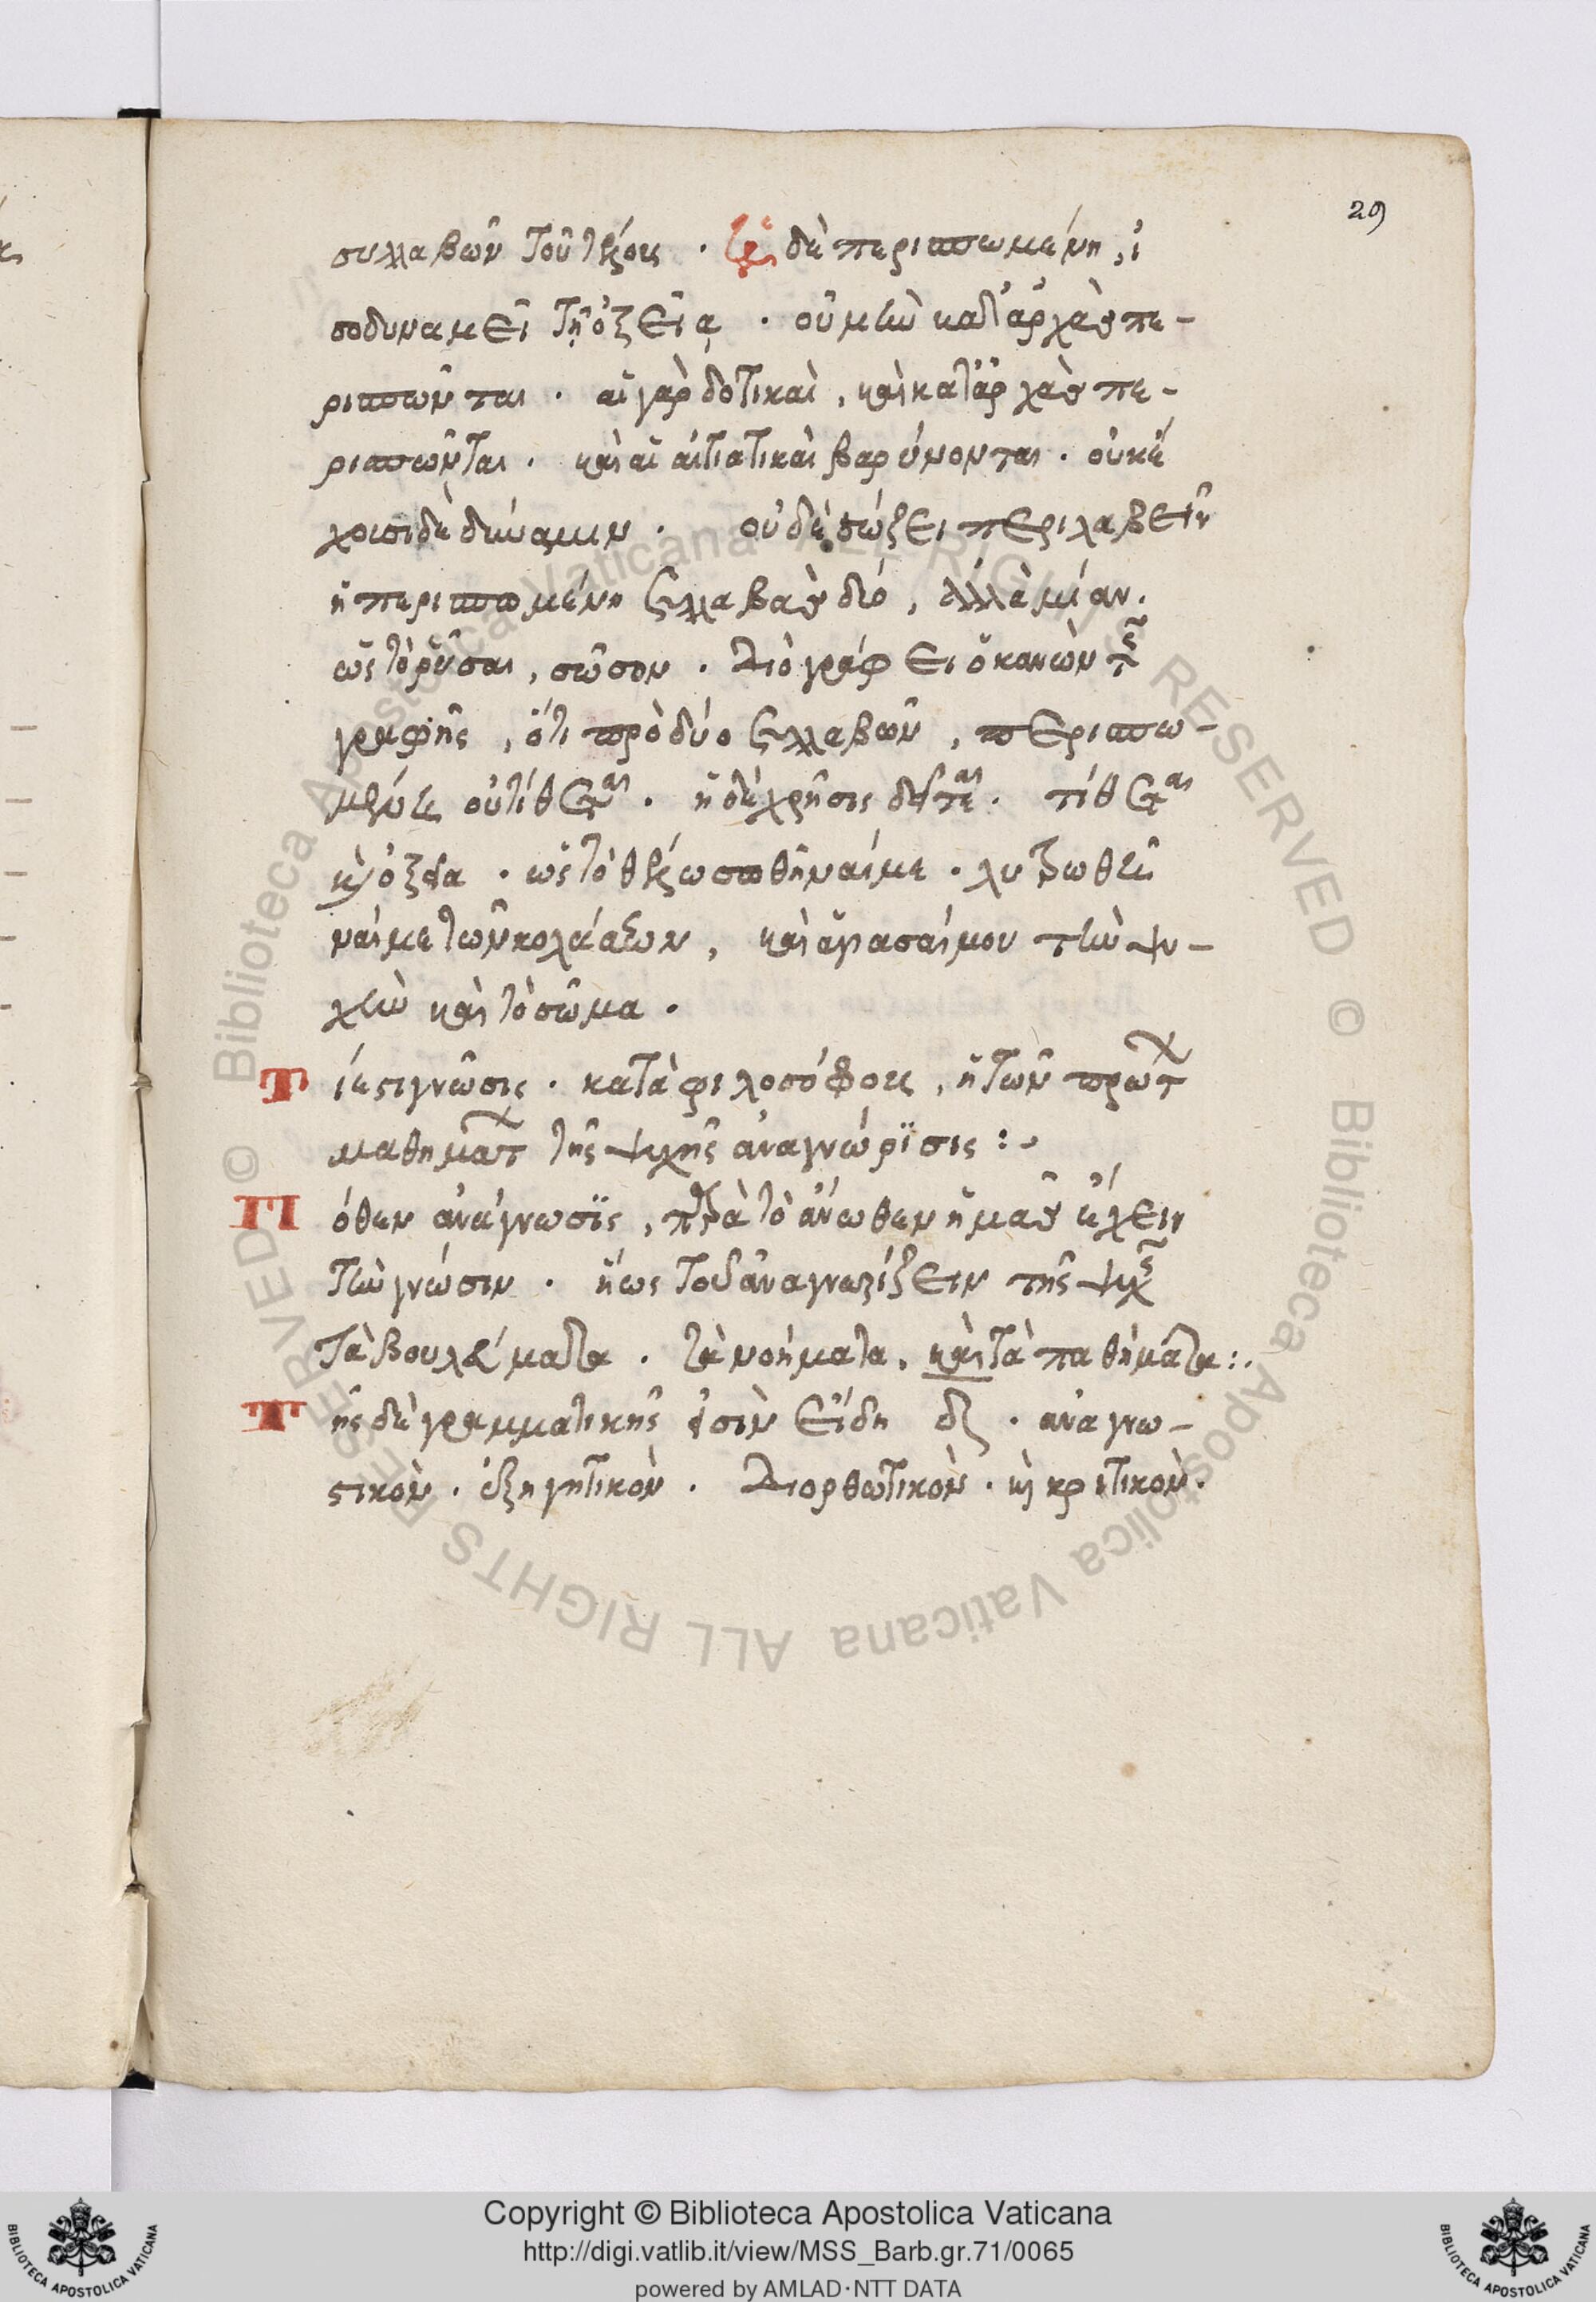 29
συλλαβῶν τοῦ τέλους . δὲ περισπωμένη , ἰ
σοδυναμεῖ τῇ ὀξεῖᾳ . οὐ μὴν κατ' ἀρχὰς πε-
ρισπῶν ται . αἱ γὰρ δοτικαὶ , καὶ κατ' ἀρχὰς πε-
ρισπῶνται . καὶ αἱ αἰτιατικαὶ βαρύνονται . οὐκ ἔ
χουσι δὲ δύναμιν . οὐδὲ σώζει περιλαβεῖν
ἡ περισπωμένη συλλαβὰς δύο , ἀλλὰ μίαν .
ὡς τὸ ῥῦσαι , σῶσον . διὸ γράφει ὁ κανὼν τῆς
γραφῆς , ὅτι πρὸ δύο συλλαβῶν , περισπω-
μένη οὐ τίθεται . ἡ δὲ χρῆσις δέ . τίθεται
καὶ ὀξεῖα . ὡς τὸ θέλω σωθῆναί με . λυτρωθῆ
ναί με τῶν κολάσεων , καὶ ἁγιασαί μου τὴν ψυ-
χὴν καὶ τὸ σῶμα .
Τ ί ἐστι γνῶσις . κατὰ φιλοσόφους , ἡ τῶν πρώτων
μαθημάτων τῆς ψυχῆς ἀναγνώρϊσις :
Π όθεν ἀνάγνωσϊς , παρὰ τὸ ἄνωθεν ἡμᾶς ἔχειν
τὴν γνῶσιν . ἢ ὡς τοῦ ἀναγνωρίζειν τῆς ψυχῆς
τὰ βουλεύματα . τὰ νοήματα . καὶ τὰ παθήματα :.
Τ ῆς δὲ γραμματικῆς εἰσὶν εἴδη δ . ἀναγνω-
στικὸν . ἐξηγητικὸν . διορθωτικὸν . καὶ κριτικὸν .
© Biblioteca Apostolica Vaticana ALL RIGHTS RESERVED © Biblioteca Apostolica Vaticana ALL RIGHTS RESERVED
Copyright © Biblioteca Apostolica Vaticana
http://digi.vatlib.it/view/MSS_Barb.gr.71/0065
powered by AMLAD·NTT DATA
BIBLIOTECA APOSTOLICA VATICANA
BIBLIOTECA APOSTOLICA VATICANA